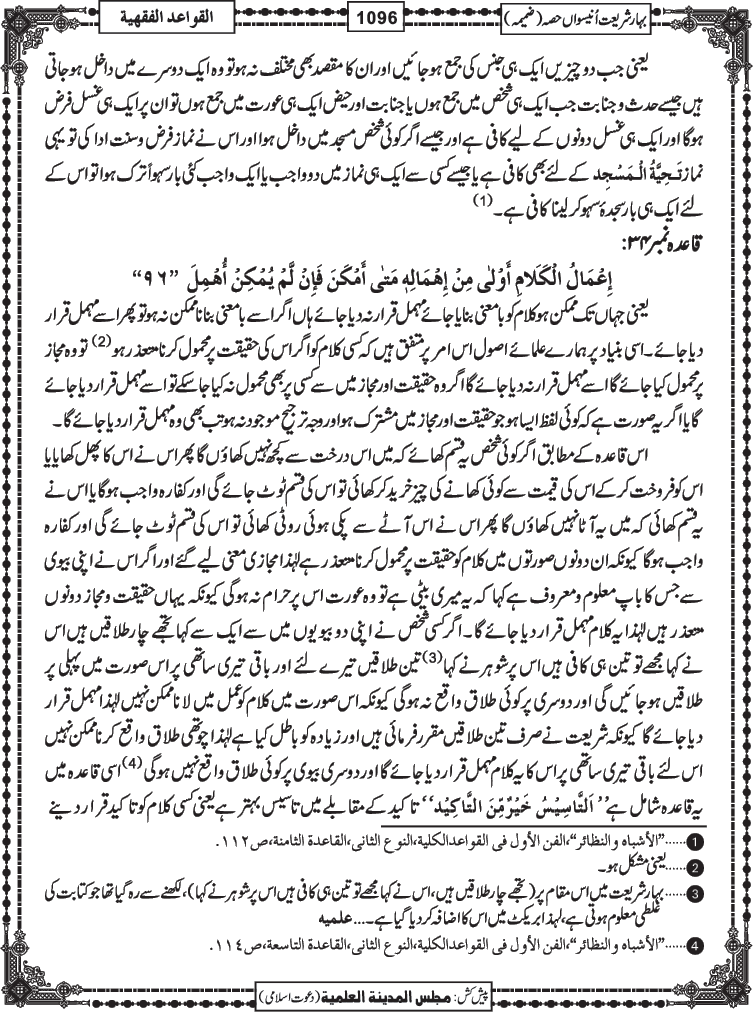 بہارِشریعت اُنیسواں حصہ (ضمیمہ)
1096
القواعد الفقھیة
یعنی جب دو چیزیں ایک ہی جنس کی جمع ہو جائیں اور ان کا مقصد بھی مختلف نہ ہو تو وہ ایک دوسرے میں داخل ہو جاتی
ہیں جیسے حدث و جنابت جب ایک ہی شخص میں جمع ہوں یا جنابت اور حیض ایک ہی عورت میں جمع ہوں تو ان پر ایک ہی غسل فرض
ہوگا اور ایک ہی غسل دونوں کے لیے کافی ہے اور جیسے اگر کوئی شخص مسجد میں داخل ہوا اور اس نے نماز فرض و سنت ادا کی تو یہی
نماز تَحِیَّۃُ الْمَسْجِد کے لئے بھی کافی ہے یا جیسے کسی سے ایک ہی نماز میں دو واجب یا ایک واجب کئی بار سہواً ترک ہوا تو اس کے
لئے ایک ہی بار سجدۂ سہو کر لینا کافی ہے۔ (1)
قاعدہ نمبر۳۴:
اِعْمَالُ الْکَلَامِ أَوْلٰی مِنْ اِھْمَالِہٖ مَتٰی أَمْکَنَ فَاِنْ لَّمْ یُمْکِنْ اُھْمِلَ ”۹۶“
یعنی جہاں تک ممکن ہو کلام کو بامعنی بنایا جائے مہمل قرار نہ دیا جائے ہاں اگر اسے بامعنی بنانا ممکن نہ ہو تو پھر اسے مہمل قرار
دیا جائے۔ اسی بنیاد پر ہمارے علمائے اصول اس امر پر متفق ہیں کہ کسی کلام کو اگر اس کی حقیقت پر محمول کرنا متعذر ہو(2) تو وہ مجاز
پر محمول کیا جائے گا اسے مہمل قرار نہ دیا جائے گا اگر وہ حقیقت اور مجاز میں سے کسی پر بھی محمول نہ کیا جا سکے تو اسے مہمل قرار دیا جائے
گا یا اگر یہ صورت ہے کہ کوئی لفظ ایسا ہو جو حقیقت اور مجاز میں مشترک ہو اور وجہ ترجیح موجود نہ ہو تب بھی وہ مہمل قرار دیا جائے گا۔
اس قاعدہ کے مطابق اگر کوئی شخص یہ قسم کھائے کہ میں اس درخت سے کچھ نہیں کھاؤں گا پھر اس نے اس کا پھل کھایا یا
اس کو فروخت کر کے اس کی قیمت سے کوئی کھانے کی چیز خرید کر کھائی تو اس کی قسم ٹوٹ جائے گی اور کفارہ واجب ہوگا یا اس نے
یہ قسم کھائی کہ میں یہ آٹا نہیں کھاؤں گا پھر اس نے اس آٹے سے پکی ہوئی روٹی کھائی تو اس کی قسم ٹوٹ جائے گی اور کفارہ
واجب ہوگا کیونکہ ان دونوں صورتوں میں کلام کو حقیقت پر محمول کرنا متعذر ہے لہٰذا مجازی معنی لیے گئے اور اگر اس نے اپنی بیوی
سے جس کا باپ معلوم و معروف ہے کہا کہ یہ میری بیٹی ہے تو وہ عورت اس پر حرام نہ ہوگی کیونکہ یہاں حقیقت و مجاز دونوں
متعذر ہیں لہٰذا یہ کلام مہمل قرار دیا جائے گا۔ اگر کسی شخص نے اپنی دو بیویوں میں سے ایک سے کہا تجھے چار طلاقیں ہیں اس
نے کہا مجھے تو تین ہی کافی ہیں اس پر شوہر نے کہا(3) تین طلاقیں تیرے لئے اور باقی تیری ساتھی پر اس صورت میں پہلی پر
طلاقیں ہو جائیں گی اور دوسری پر کوئی طلاق واقع نہ ہوگی کیونکہ اس صورت میں کلام کو عمل میں لانا ممکن نہیں لہٰذا مہمل قرار
دیا جائے گا کیونکہ شریعت نے صرف تین طلاقیں مقرر فرمائی ہیں اور زیادہ کو باطل کیا ہے لہٰذا چوتھی طلاق واقع کرنا ممکن نہیں
اس لئے باقی تیری ساتھی پر اس کا یہ کلام مہمل قرار دیا جائے گا اور دوسری بیوی پر کوئی طلاق واقع نہیں ہوگی(4) اسی قاعدہ میں
یہ قاعدہ شامل ہے ’’اَلتَّاسِیْسُ خَیْرٌ مِّنَ التَّاکِیْدِ‘‘ تاکید کے مقابلے میں تاسیس بہتر ہے یعنی کسی کلام کو تاکید قرار دینے
1......”الأشباہ والنظائر“،الفن الأول فی القواعدالکلیة،النوع الثانی،القاعدة الثامنة،ص۱۱۲.
2......یعنی مشکل ہو۔
3......بہار شریعت میں اس مقام پر (تجھے چار طلاقیں ہیں، اس نے کہا مجھے تو تین ہی کافی ہیں اس پر شوہر نے کہا)، لکھنے سے رہ گیا تھا جو کتابت کی
غلطی معلوم ہوتی ہے، لہٰذا بریکٹ میں اس کا اضافہ کر دیا گیا ہے۔...علمیہ
4......”الأشباہ والنظائر“،الفن الأول فی القواعدالکلیة،النوع الثانی،القاعدة التاسعة،ص۱۱٤.
پیش کش: مجلس المدینة العلمیة (دعوت اسلامی)